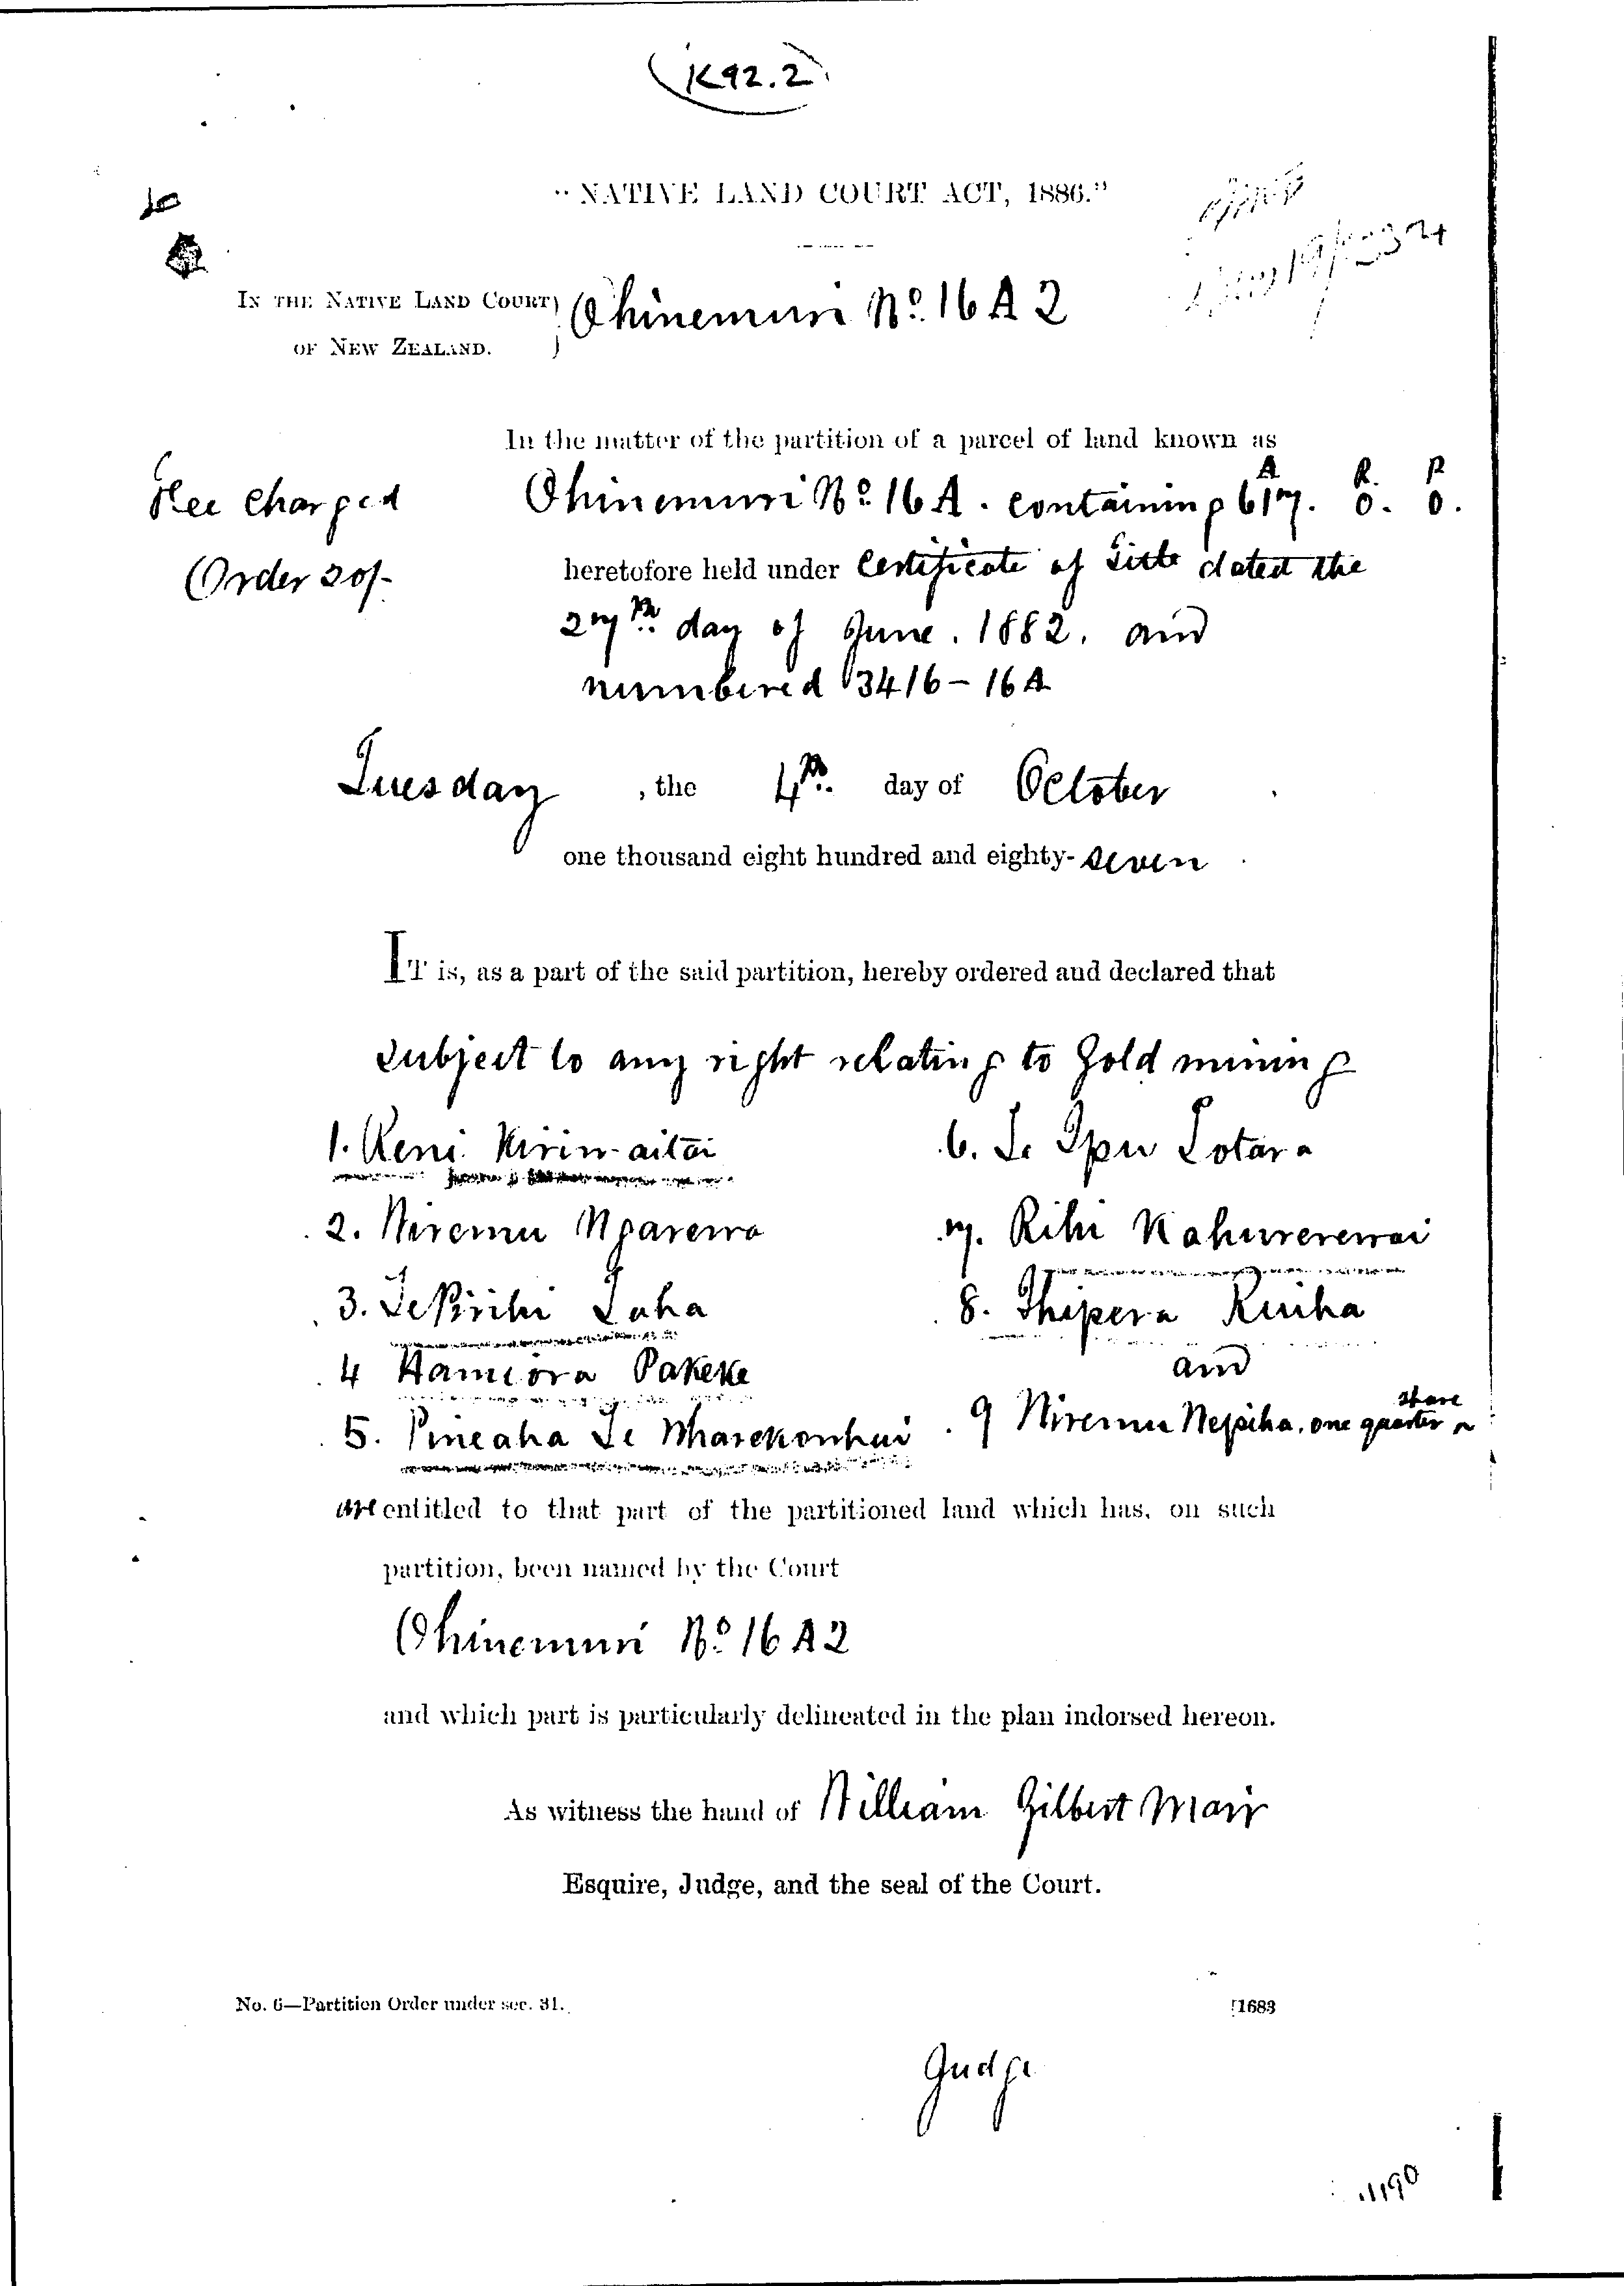 K92.2
"NATIVE LAND COURT ACT, 1886."
IN THE NATIVE LAND COURT
OF NEW ZEALAND.
Ohinemuri No. 16 A 2
In the matter of the partition of a parcel of land known as
Fee Charged
Order 20/-
Ohinemuri No. 16 A. containing 617. 0. 0.
A R. P
heretofore held under Certificate of Title dated the
27th day of June. 1882. and
numbered 3416 - 16 A
Tuesday, the 4th. day of October
one thousand eight hundred and eighty-seven
IT is, as a part of the said partition, hereby ordered and declared that
subject to any right relating to Gold mining
1. Reni
2. Wiremu
3. Te
4 Hamiora Pakeke
5. Pineaha Te Wharekowhai
6. Te Ipu Totara
7. Rihi Kahurerewai
8. Ihipera Kuiha
and
9 Wiremu Nepiha. one quarter share
are entitled to that part of the partitioned land which has, on such
partition, been named by the Court
Ohinemuri No. 16 A 2
and which part is particularly delineated in the plan indorsed hereon.
As witness the hand of William Gilbert Mair
Esquire, Judge, and the seal of the Court.
No. 6—Partition Order under sec. 31.
1683
Judge
1190